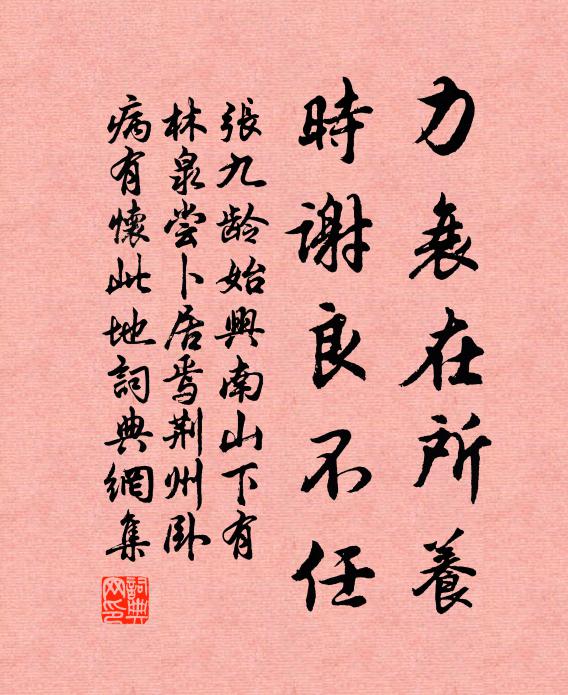 力衰在所養
時謝良不任
張九龄始興南山下有
林泉尝卜居焉荆州卧
病有懷此地詞典網集
詞典网印